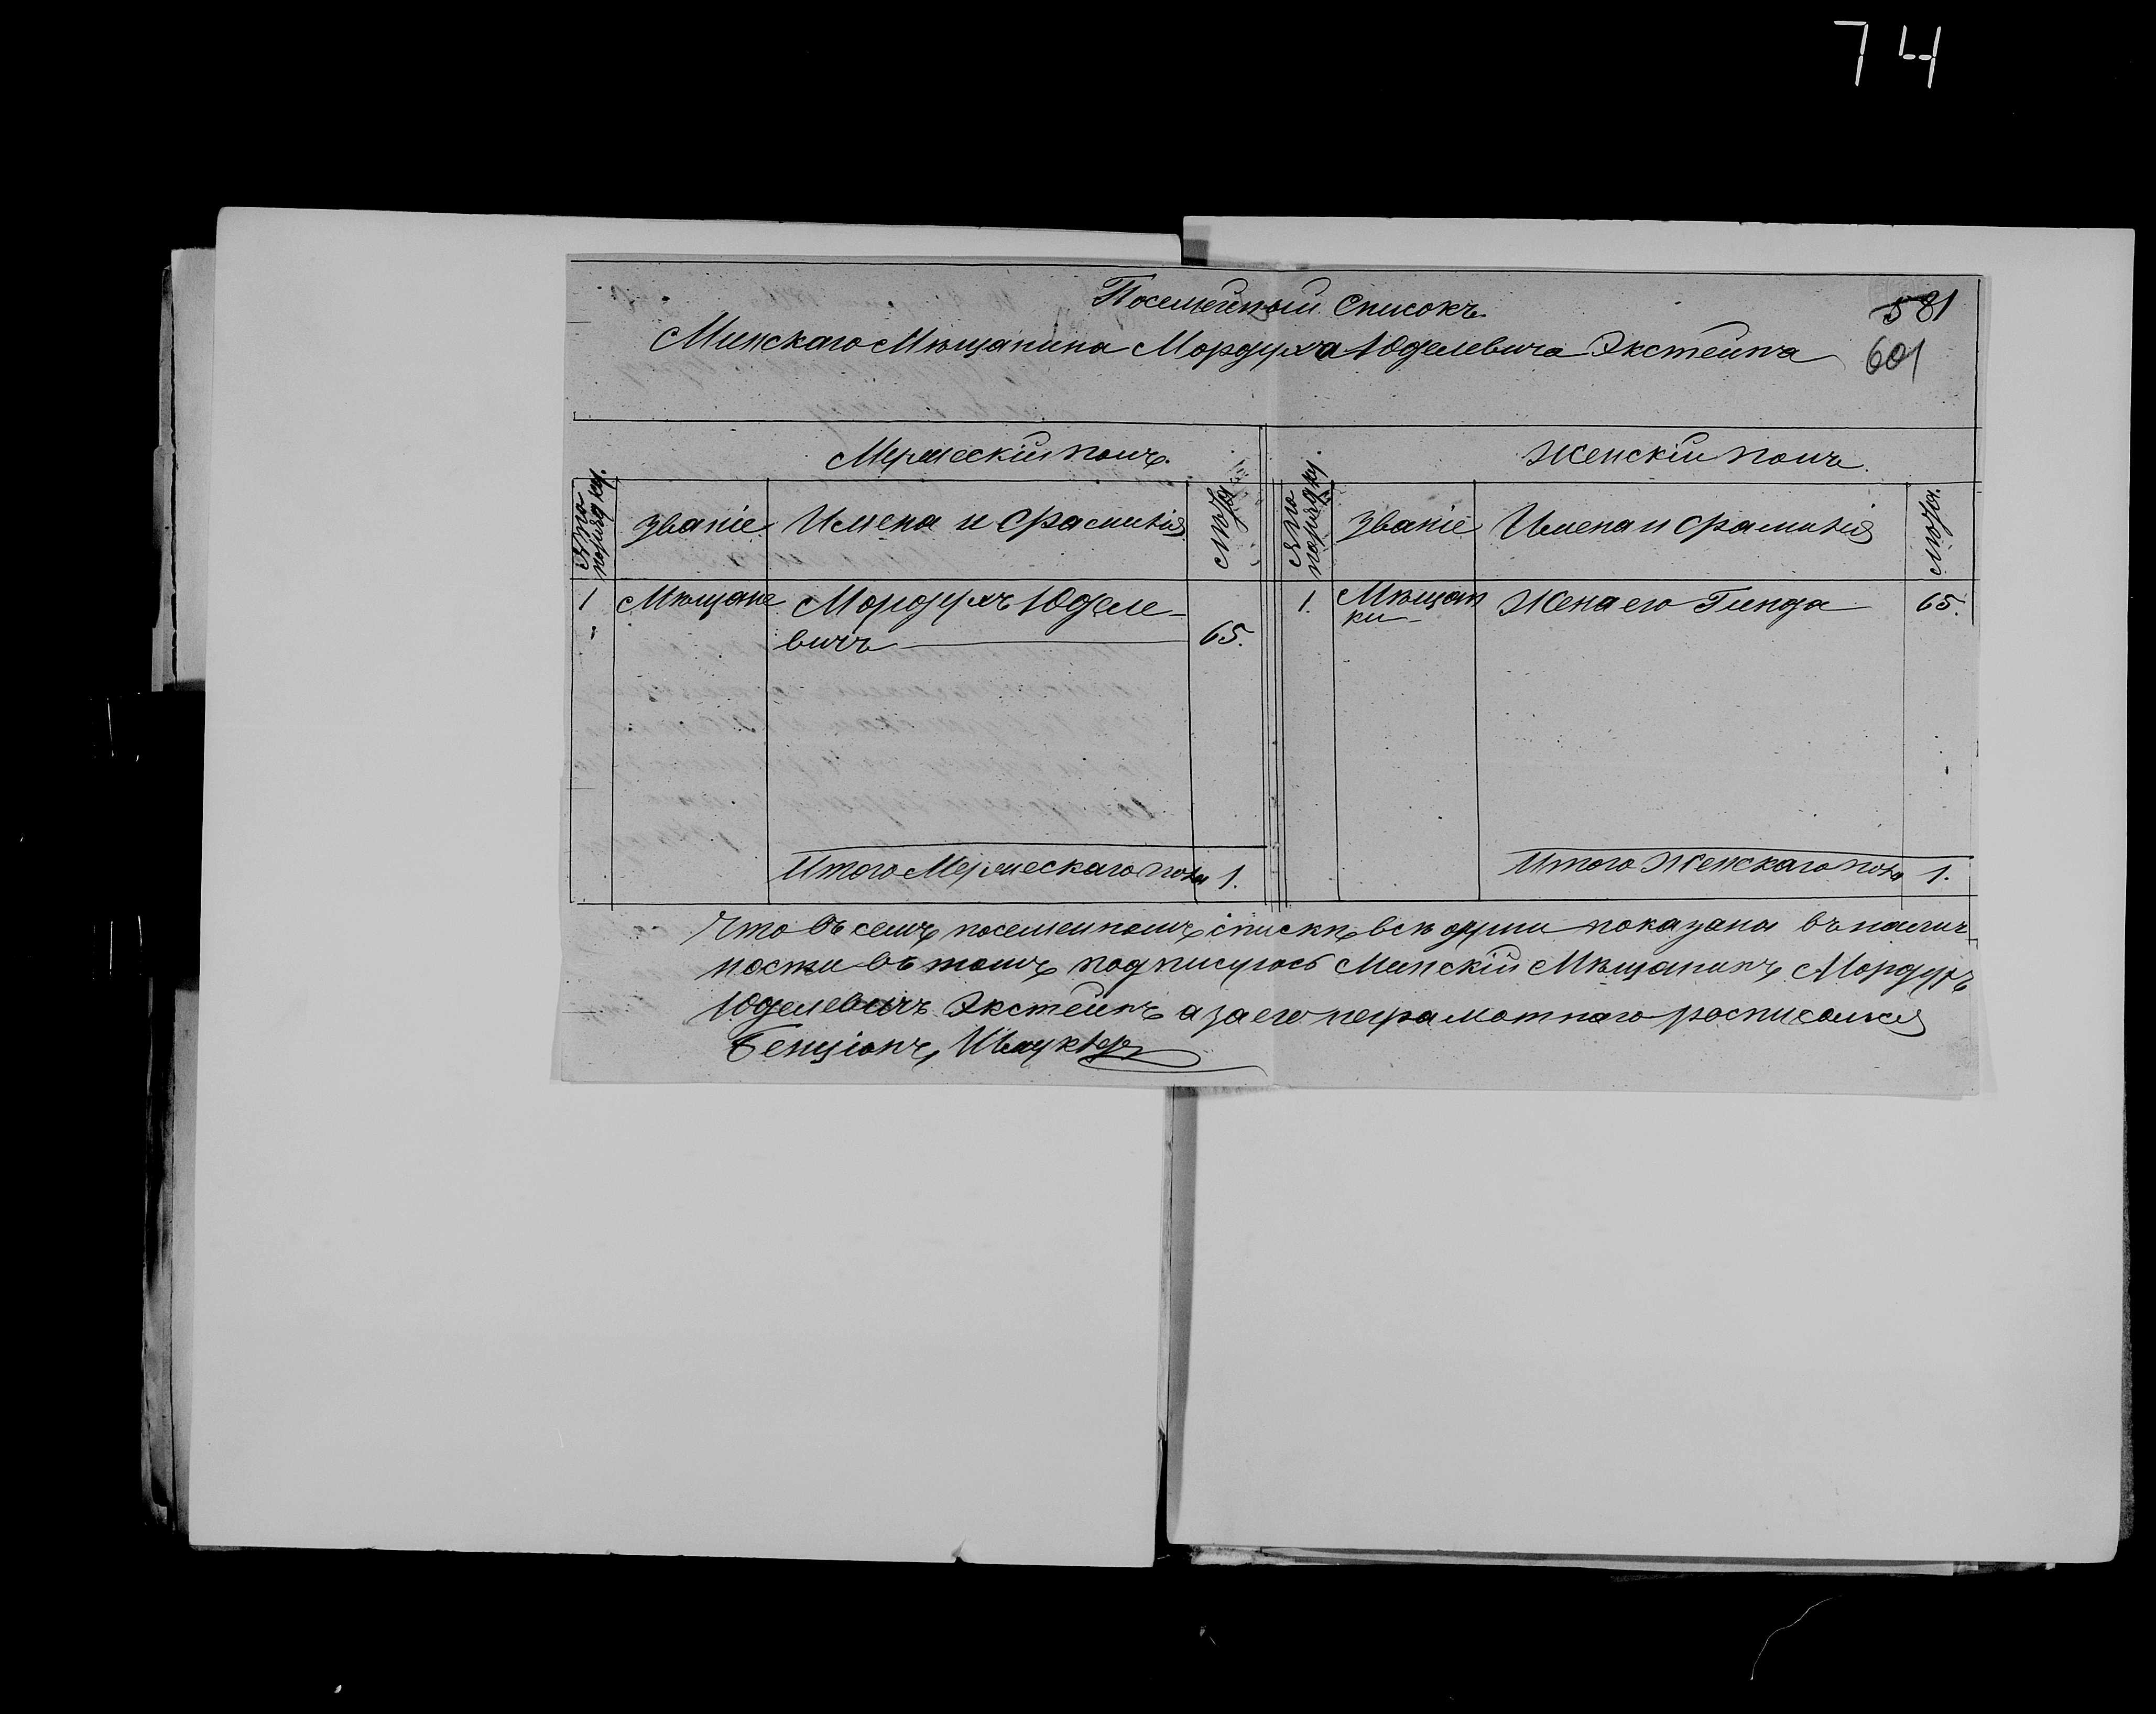 74
Посемейный Списокъ
581
Минскаго Мѣщанина Мордуха Юделевича Экстейна
601
Мужескій полъ.
Женскій полъ.
№ по порядку.
званіе
Имена и фамилія
лѣта
№ по порядку.
званіе
Имена и фамилія
лѣта.
1
Мѣщане
Мордухъ Юделе-
вичъ
65.
1.
Мѣщан
ки
Жена его Гинда
65.
Итого Мужескаго пола 1.
Итого Женскаго пола 1.
Что въ семъ посемейномъ спискѣ всѣ души показаны въ налич
ности въ томъ подписуюсь Минскій Мѣщанинъ Мордухъ
Юделевичъ Экстейнъ а за его неграмотнаго росписался
Бенціонъ